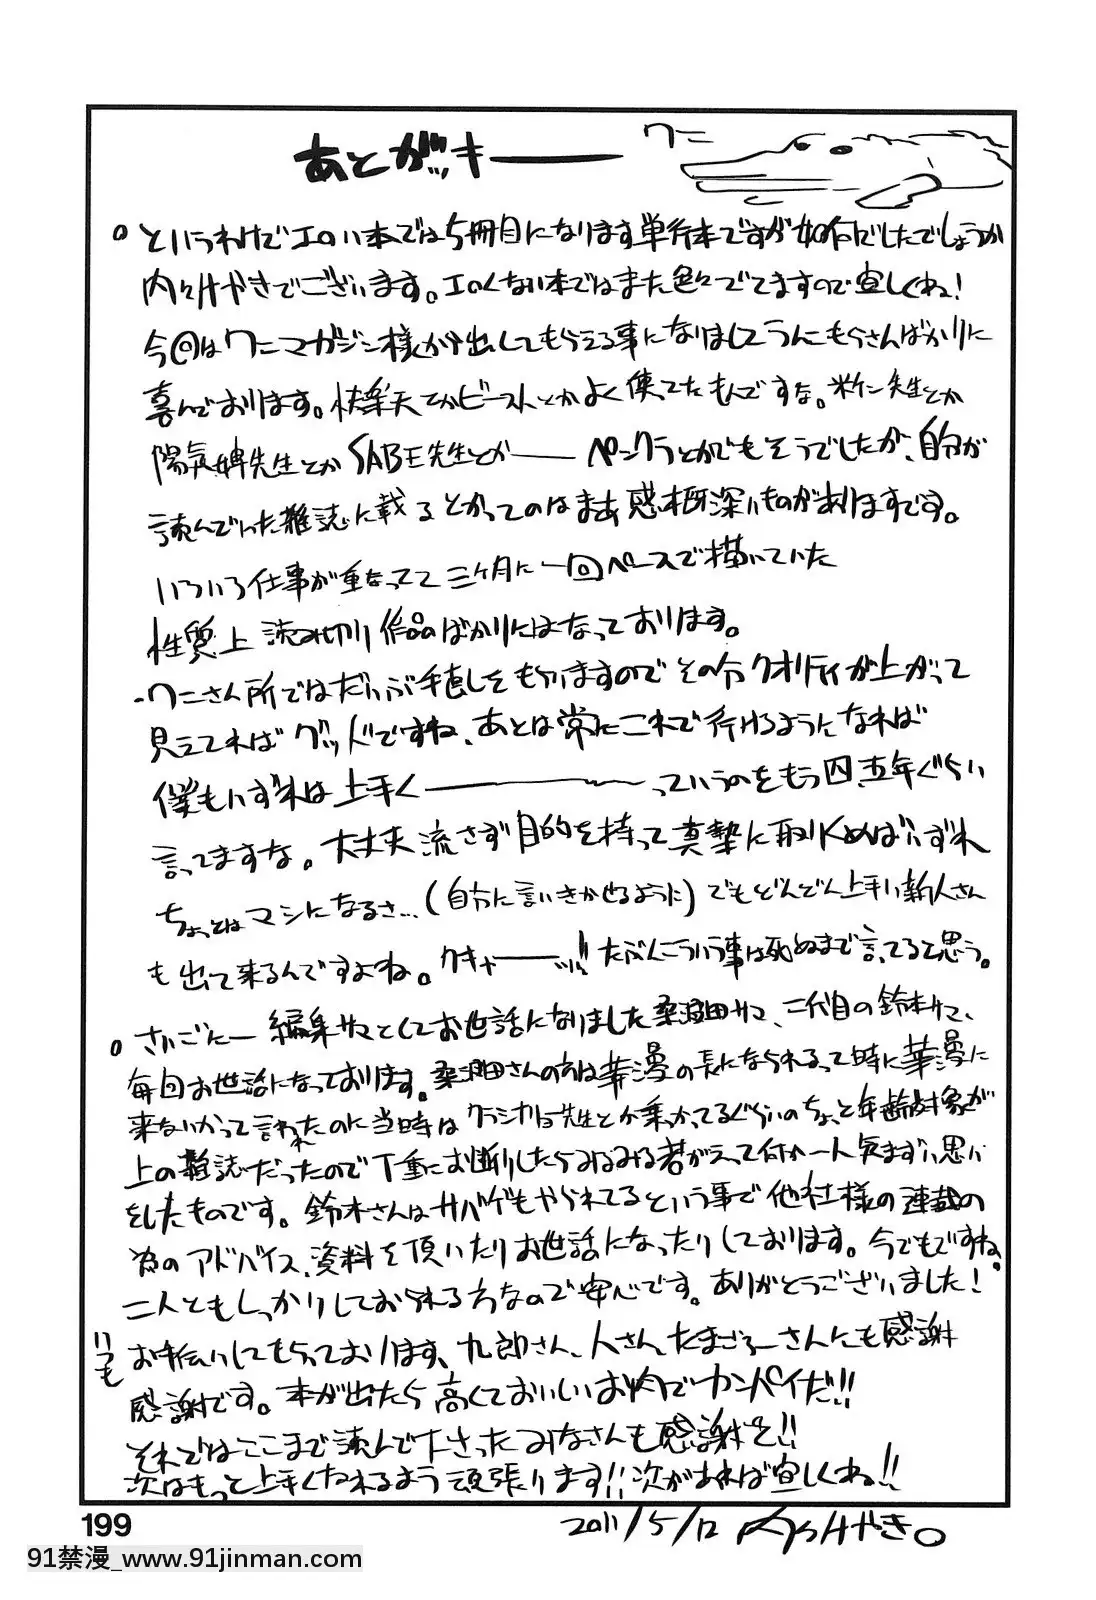 あとがッキーーー
ワニ
というわけでエロい本では5冊目になります単行本ですが如何でしたでしょうか
内々けやきでございます。エロくない本ではまた色々でてますので宜しくね!
今回はワニマガジン様から出してもらえる事になりましてうんこもらさんばかりに
喜んでおります。快楽天とかビーストとかよく使ってたもんですな。米仁先生とか
陽気婢先生とかSABE先生とかーーーペンクラとかでもそうでしたが、自分が
読んでいた雑誌に載るとかってのはまあ感慨深いものがありますです。
いろいろ仕事が重なってて三ヶ月に一回ペースで描いていた
性質上読み切り作品ばかりにはなっております。
ワニさん所ではだいぶ手直しをもらいますのでその分クオリティが上がって
見えてればグッドですね、あとは常にこれで行けるようになれば
僕もいずれは上手くーーーーっていうのをもう四、五年ぐらい
言ってますな。大丈夫流さず目的を持って真摯に取り組めばいずれ
ちょっとはマシになるさ…(自分に言いきかせるように)でもどんどん上手い新人さん
も出て来るんですよね。クキャーーーッ!!たぶんこういう事は死ぬまで言ってると思う。
さいごにー編集サマとしてお世話になりました桑田サマ、二代目の鈴木サマ、
毎回お世話になっております。桑田さんの方は華漫の長になられるって時に華漫に
来ないかって言われたのに当時はクラシカル先生とか乗っかってるぐらいのちょっと年齢対象が
上の雑誌だったので丁重にお断りしたらみるみる若がえって何か一人気まずい思い
をしたものです。鈴木さんはサバゲもやられてるという事で他社様の連載の
為のアドバイス、資料を頂いたりお世話になったりしております。今でもですね。
二人ともしっかりしておられる方なので安心です。ありがとうございました!
いつも
お手伝いしてもらっております、九郎さん、人さん、たまごろーさんにも感謝
感謝です。本が出たら高くておいしいお肉でカンパイだ!!
それではここまで読んで下さったみなさんも感謝を!!
次はもっと上手くなれるよう頑張ります!!次があれば宜しくね!!
2011/5/12 内々けやき。
199
91禁漫_www.91jinman.com